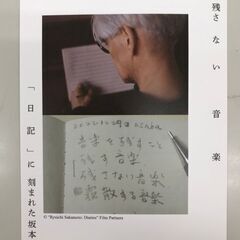 残さない音楽
「日記」に刻まれた坂本
音楽を残すこと
残す音楽
残さない音楽
散する音楽
© "Ryuichi Sakamoto: Diaries" Film Partners